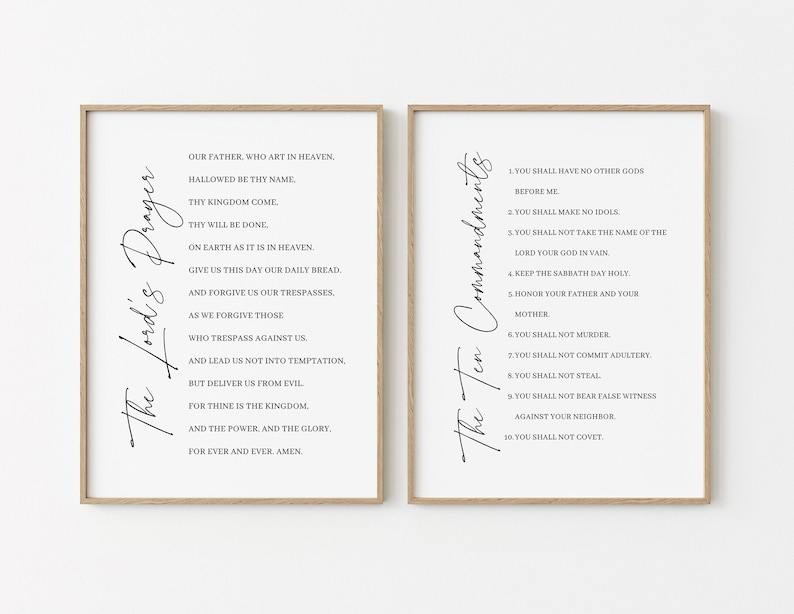 The Lord's Prayer
OUR FATHER, WHO ART IN HEAVEN,
HALLOWED BE THY NAME,
THY KINGDOM COME,
THY WILL BE DONE,
ON EARTH AS IT IS IN HEAVEN.
GIVE US THIS DAY OUR DAILY BREAD.
AND FORGIVE US OUR TRESPASSES,
AS WE FORGIVE THOSE
WHO TRESPASS AGAINST US.
AND LEAD US NOT INTO TEMPTATION,
BUT DELIVER US FROM EVIL.
FOR THINE IS THE KINGDOM,
AND THE POWER, AND THE GLORY,
FOR EVER AND EVER. AMEN.
The Ten Commandments
1. YOU SHALL HAVE NO OTHER GODS
BEFORE ME.
2. YOU SHALL MAKE NO IDOLS.
3. YOU SHALL NOT TAKE THE NAME OF THE
LORD YOUR GOD IN VAIN.
4. KEEP THE SABBATH DAY HOLY.
5. HONOR YOUR FATHER AND YOUR
MOTHER.
6. YOU SHALL NOT MURDER.
7. YOU SHALL NOT COMMIT ADULTERY.
8. YOU SHALL NOT STEAL.
9. YOU SHALL NOT BEAR FALSE WITNESS
AGAINST YOUR NEIGHBOR.
10. YOU SHALL NOT COVET.